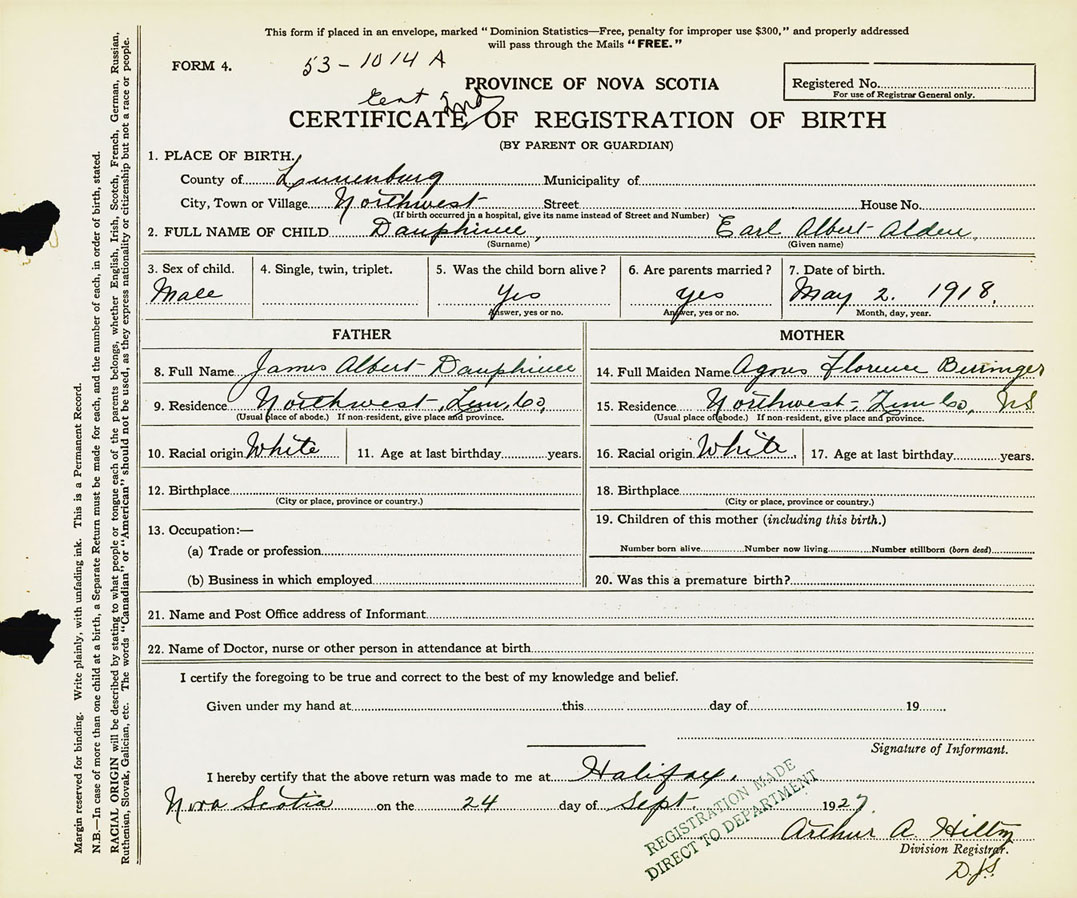 This form if placed in an envelope, marked "Dominion Statistics—Free, penalty for improper use $300," and properly addressed
will pass through the Mails "FREE."
FORM 4.
53-1014 A
PROVINCE OF NOVA SCOTIA
Registered No.
For use of Registrar General only.
Cert 2nd
CERTIFICATE OF REGISTRATION OF BIRTH
(BY PARENT OR GUARDIAN)
1. PLACE OF BIRTH.
County of Lunenburg Municipality of
City, Town or Village Northwest Street House No.
(If birth occurred in a hospital, give its name instead of Street and Number)
2. FULL NAME OF CHILD Dauphinee, Earl Albert Alden
(Surname) (Given name)
3. Sex of child. 4. Single, twin, triplet. 5. Was the child born alive? 6. Are parents married? 7. Date of birth.
Male Yes yes May 2. 1918.
Answer, yes or no. Answer, yes or no. Month, day, year.
FATHER
8. Full Name James Albert Dauphinee
9. Residence Northwest, Lun, Co,
(Usual place of abode.) If non-resident, give place and province.
10. Racial origin White 11. Age at last birthday years.
12. Birthplace
(City or place, province or country.)
13. Occupation:—
(a) Trade or profession
(b) Business in which employed
MOTHER
14. Full Maiden Name Agnes Florence Beringer
15. Residence Northwest, Lun Co, NS
(Usual place of abode.) If non-resident, give place and province.
16. Racial origin White. 17. Age at last birthday years.
18. Birthplace
(City or place, province or country.)
19. Children of this mother (including this birth.)
Number born alive Number now living Number stillborn (born dead)
20. Was this a premature birth?
21. Name and Post Office address of Informant
22. Name of Doctor, nurse or other person in attendance at birth
I certify the foregoing to be true and correct to the best of my knowledge and belief.
Given under my hand at this day of 19
Signature of Informant.
I hereby certify that the above return was made to me at Halifax.
Nova Scotia on the 24 day of Sept. 1927.
REGISTRATION MADE
DIRECT TO DEPARTMENT
Arthur A. Hilton
Division Registrar.
D.J.S.
Margin reserved for binding. Write plainly, with unfading ink. This is a Permanent Record.
N.B.—In case of more than one child at a birth, a Separate Return must be made for each, and the number of each, in order of birth, stated.
RACIAL ORIGIN will be described by stating to what people or tongue each of the parents belongs, whether English, Irish, Scotch, French, German, Russian,
Ruthenian, Slovak, Galician, etc. The words "Canadian" or "American" should not be used, as they express nationality or citizenship but not a race or people.